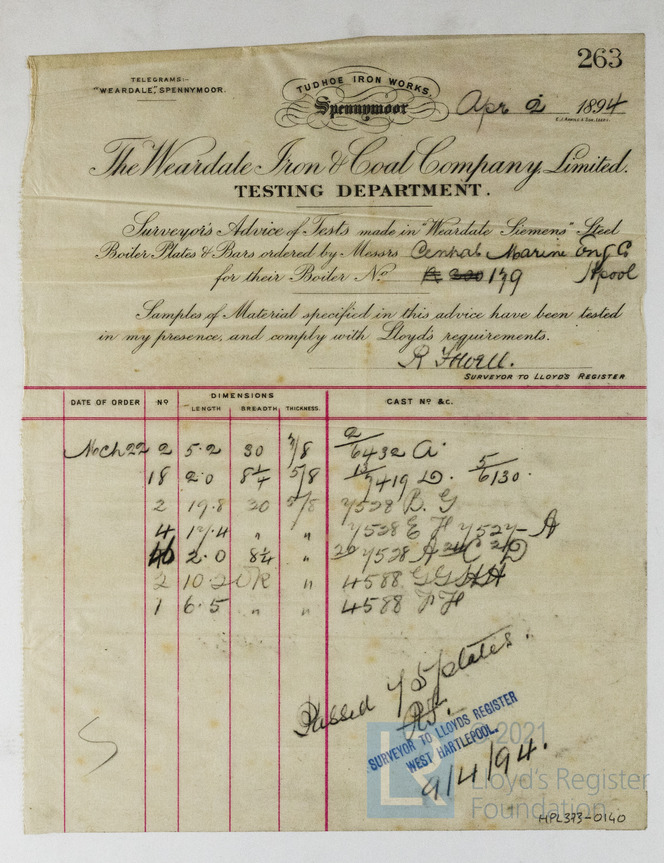 263
TELEGRAMS:-
"WEARDALE", SPENNYMOOR.
TUDHOE IRON WORKS,
Spennymoor
Apr 2 1894
E.J. ARNOLD & SON, LEEDS.
The Weardale Iron & Coal Company, Limited.
TESTING DEPARTMENT.
Surveyor's Advice of Tests made in "Weardale Siemens" Steel
Boiler Plates & Bars ordered by Messrs Central Marine Eng Co
for their Boiler No. 179 Hpool
Samples of Material specified in this advice have been tested
in my presence, and comply with Lloyd's requirements.
SURVEYOR TO LLOYD'S REGISTER
DATE OF ORDER No DIMENSIONS CAST Nos &c.
LENGTH BREADTH THICKNESS.
Mch 22 2 5.2 30 7/8 2/6432 A
18 2.0 8 1/4 5/8 13/7419 D. 5/6130.
2 19.8 30 5/8 7528 B. G
4 17.4 " " 7528 E H 7527 A
2.0 8 1/4 " 20 7528 A
2 10.2 " 4588 G G H H
1 6.5 " " 4588 F H
Passed 75 plates.
SURVEYOR TO LLOYDS REGISTER
WEST HARTLEPOOL.
9/4/94.
© 2021
Lloyd's Register
Foundation
HPL373-0140